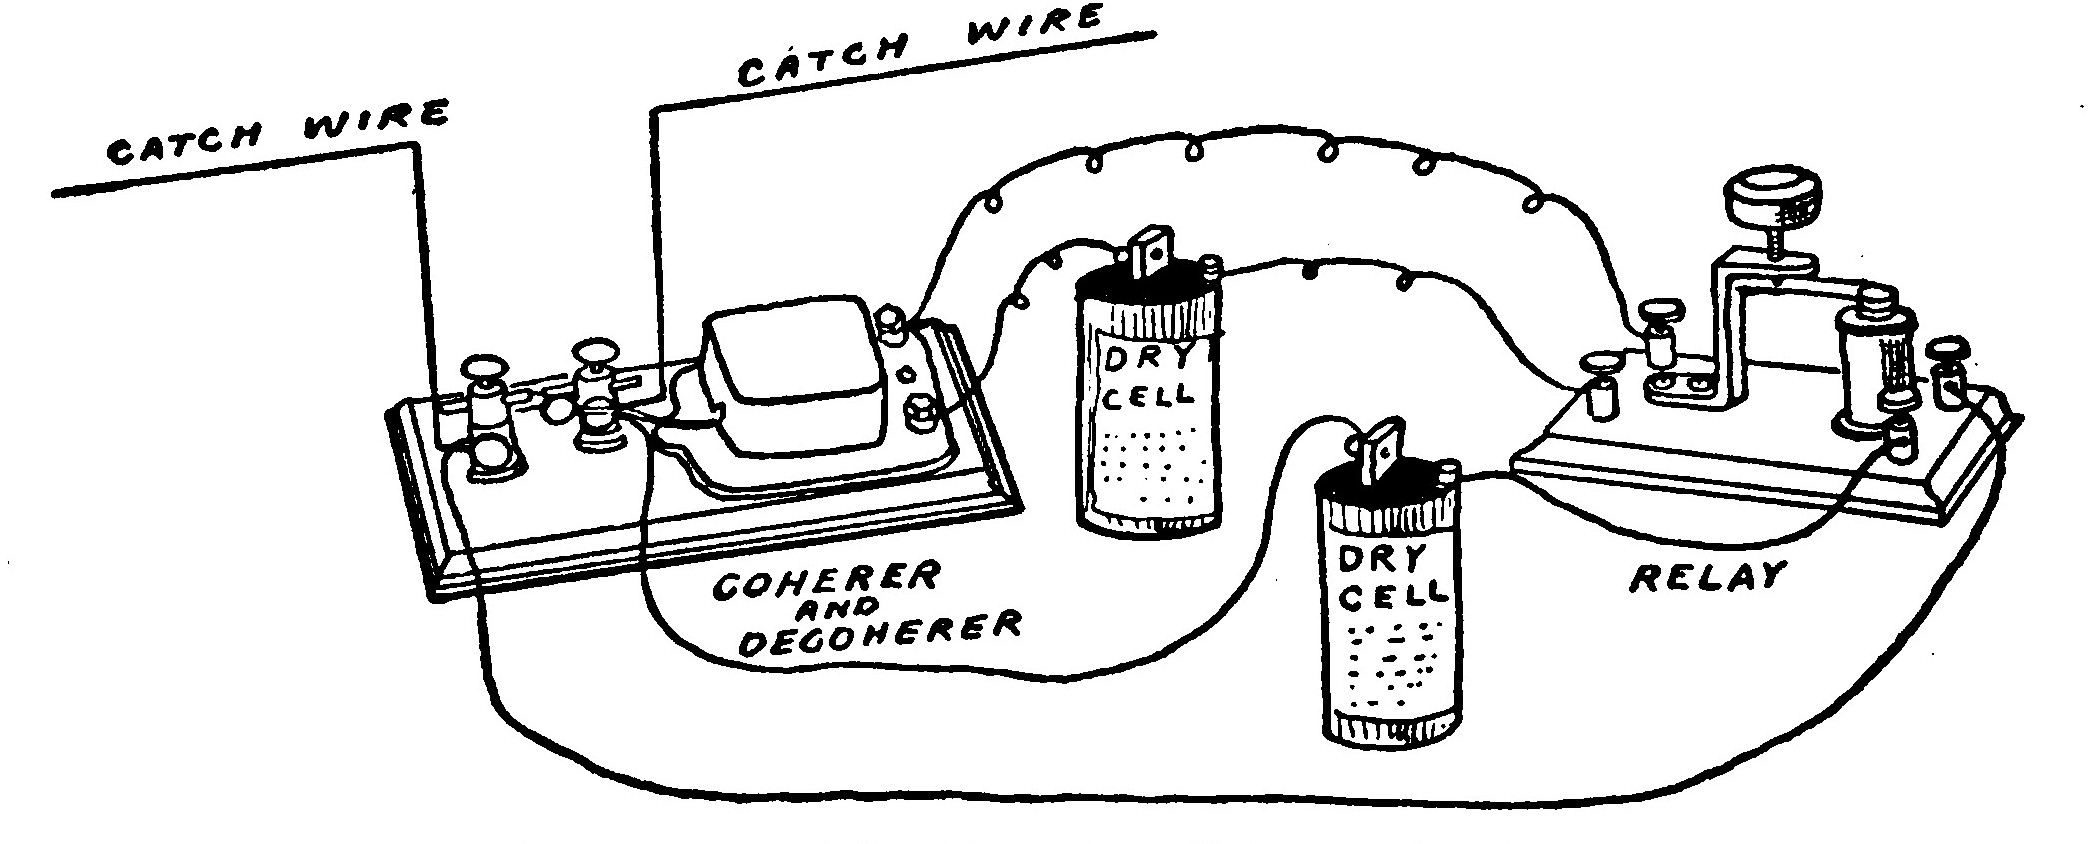 CATCH WIRE
CATCH WIRE
DRY
CELL
DRY
CELL
COHERER
AND
DECOHERER
RELAY